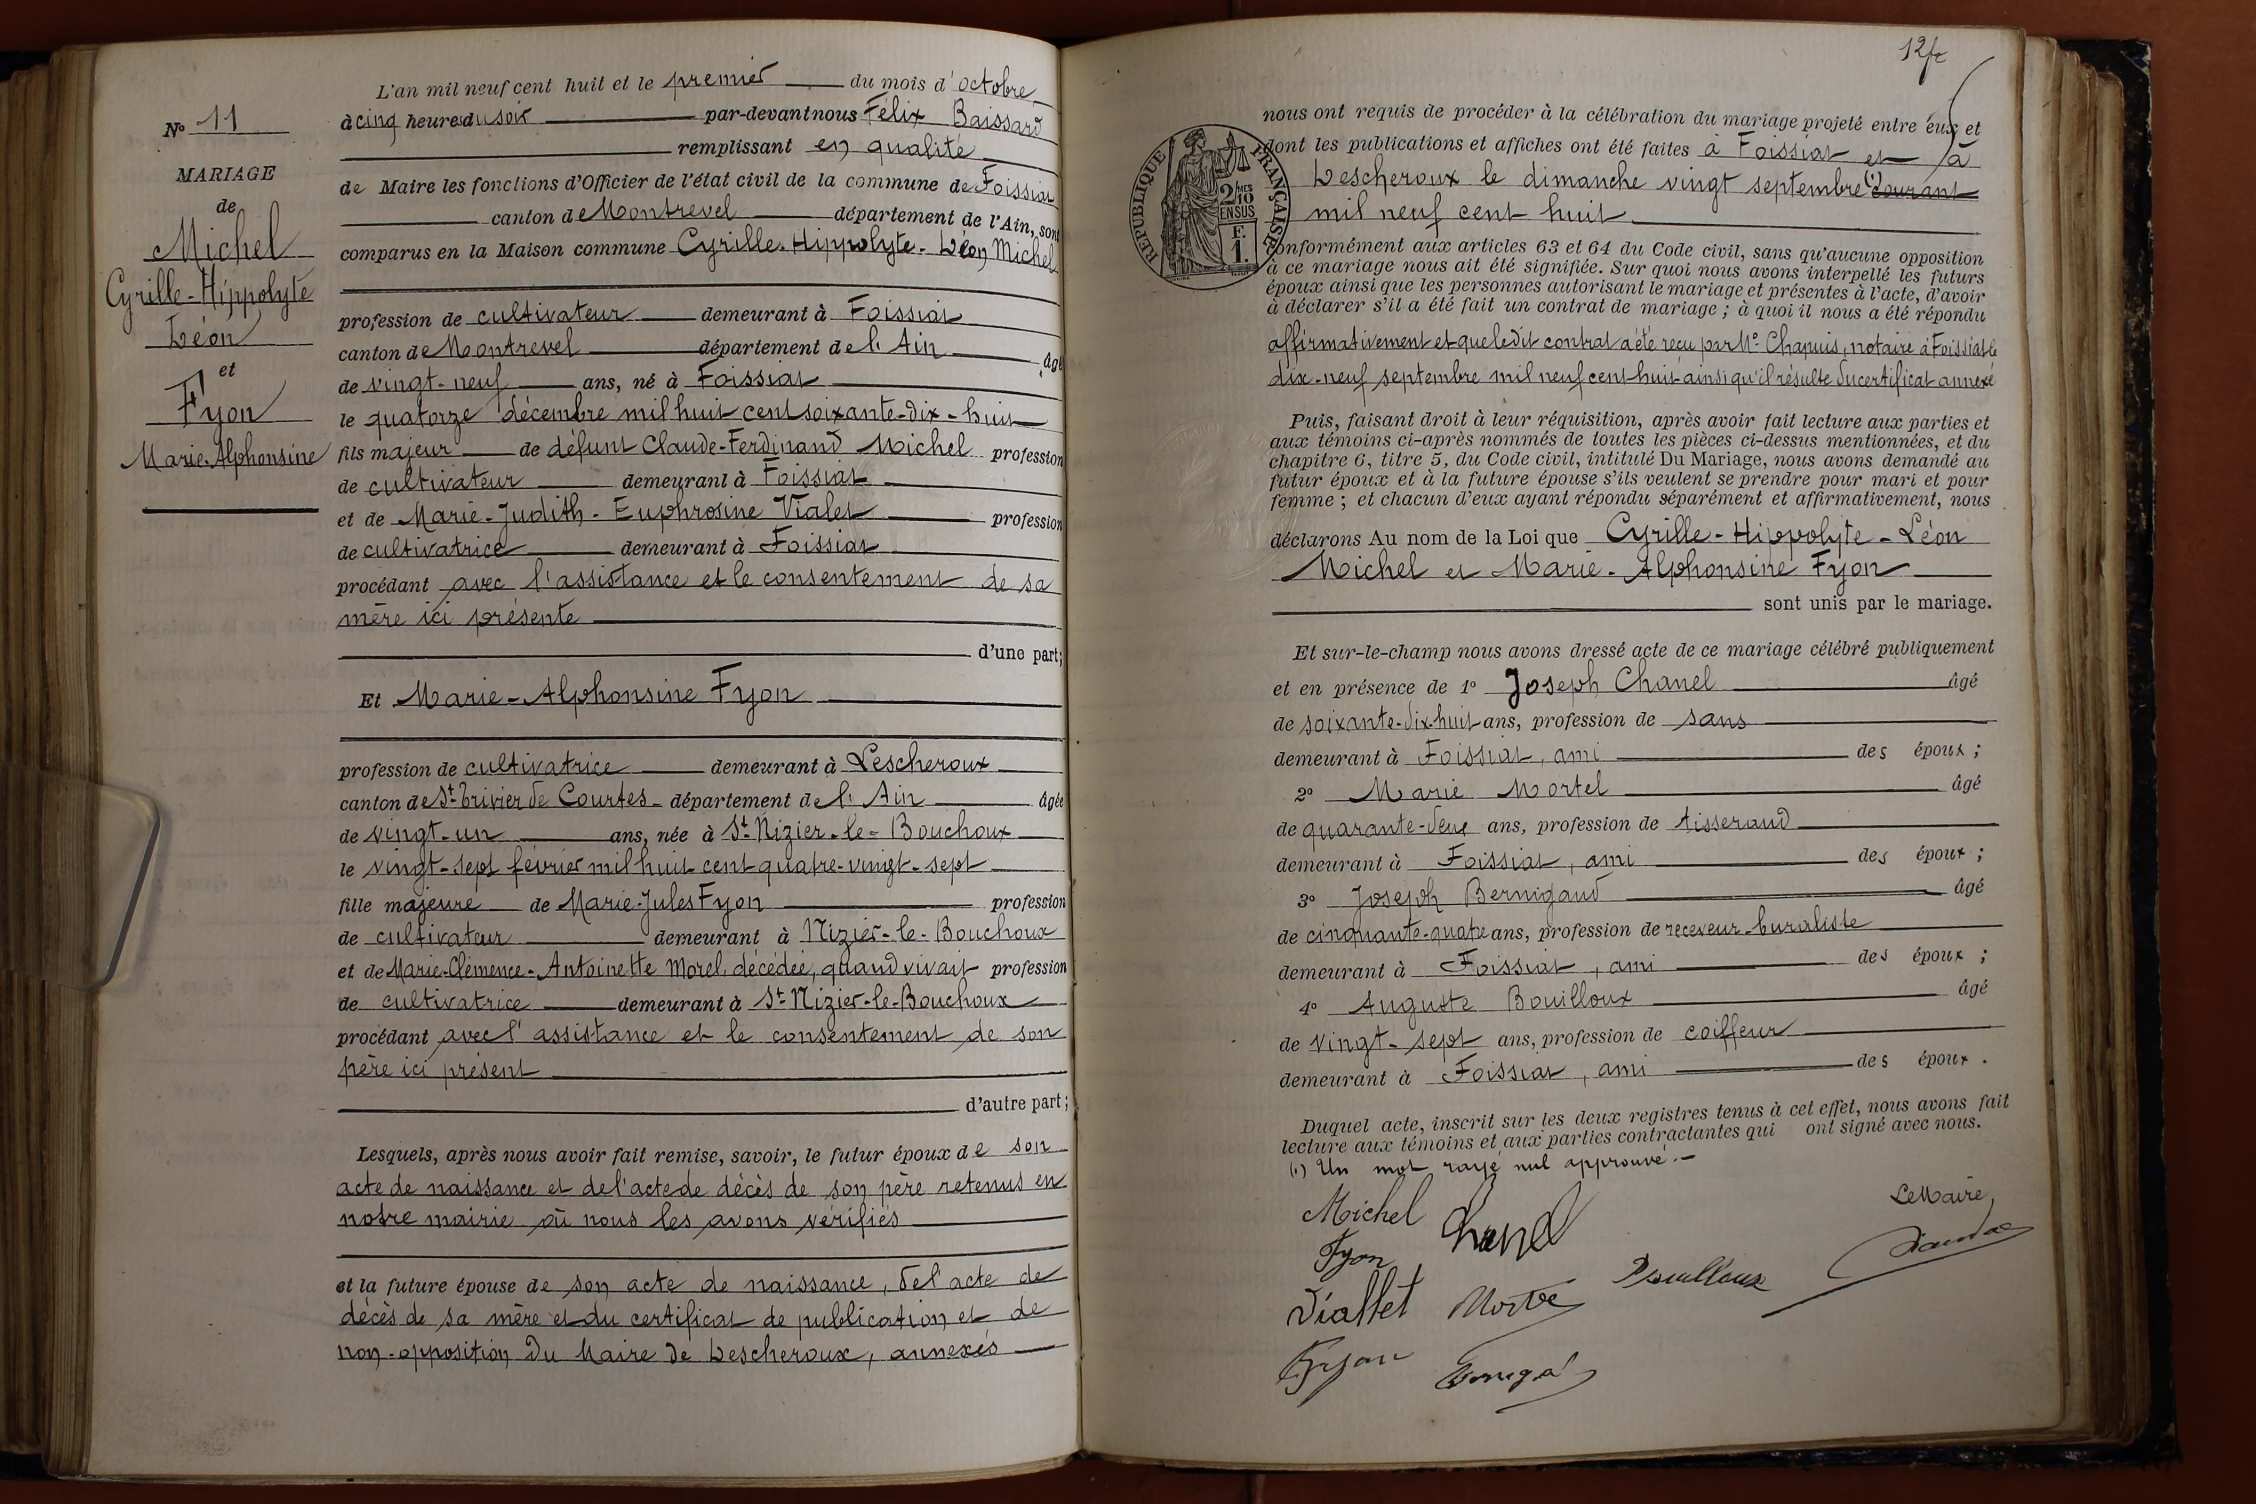 L'an mil neuf cent huit et le premier du mois d'octobre
à cinq heures du soir par-devant nous Félix Baissard
remplissant en qualité
de Maire les fonctions d'Officier de l'état civil de la commune de Foissiat
canton de Montrevel département de l'Ain, sont
comparus en la Maison commune Cyrille-Hippolyte-Léon Michel
profession de cultivateur demeurant à Foissiat
canton de Montrevel département de l'Ain âgé
de vingt-neuf ans, né à Foissiat
le quatorze décembre mil huit cent soixante-dix-huit
fils majeur de défunt Claude-Ferdinand Michel profession
de cultivateur demeurant à Foissiat
et de Marie-Judith-Euphrosine Vialet profession
de cultivatrice demeurant à Foissiat
procédant avec l'assistance et le consentement de sa
mère ici présente
d'une part;
Et Marie-Alphonsine Fyon
profession de cultivatrice demeurant à Lescheroux
canton de St-Trivier de Courtes département de l'Ain âgée
de vingt-un ans, née à St-Nizier-le-Bouchoux
le vingt-sept février mil huit cent quatre-vingt-sept
fille majeure de Marie-Jules Fyon profession
de cultivateur demeurant à Nizier-le-Bouchoux
et de Marie-Clémence-Antoinette Morel, décédée, quand vivait profession
de cultivatrice demeurant à St-Nizier-le-Bouchoux
procédant avec l'assistance et le consentement de son
père ici présent
d'autre part;
Lesquels, après nous avoir fait remise, savoir, le futur époux de son
acte de naissance et de l'acte de décès de son père retenus en
notre mairie où nous les avons vérifiés
et la future épouse de son acte de naissance, de l'acte de
décès de sa mère et du certificat de publication et de
non-opposition du Maire de Lescheroux, annexés
No 11
MARIAGE
de
Michel
Cyrille-Hippolyte
Léon
et
Fyon
Marie-Alphonsine
nous ont requis de procéder à la célébration du mariage projeté entre eux et
dont les publications et affiches ont été faites à Foissiat et à
Lescheroux le dimanche vingt septembre (1) courant
mil neuf cent huit
conformément aux articles 63 et 64 du Code civil, sans qu'aucune opposition
à ce mariage nous ait été signifiée. Sur quoi nous avons interpellé les futurs
époux ainsi que les personnes autorisant le mariage et présentes à l'acte, d'avoir
à déclarer s'il a été fait un contrat de mariage ; à quoi il nous a été répondu
affirmativement et que ledit contrat a été reçu par Me Chapuis, notaire à Foissiat le
dix-neuf septembre mil neuf cent huit ainsi qu'il résulte du certificat annexé
Puis, faisant droit à leur réquisition, après avoir fait lecture aux parties et
aux témoins ci-après nommés de toutes les pièces ci-dessus mentionnées, et du
chapitre 6, titre 5, du Code civil, intitulé Du Mariage, nous avons demandé au
futur époux et à la future épouse s'ils veulent se prendre pour mari et pour
femme ; et chacun d'eux ayant répondu séparément et affirmativement, nous
déclarons Au nom de la Loi que Cyrille-Hippolyte-Léon
Michel et Marie-Alphonsine Fyon
sont unis par le mariage.
Et sur-le-champ nous avons dressé acte de ce mariage célébré publiquement
et en présence de 1o Joseph Chanel âgé
de soixante-dix-huit ans, profession de sans
demeurant à Foissiat, ami des époux ;
2o Marie Mortel âgé
de quarante-deux ans, profession de tisserand
demeurant à Foissiat, ami des époux ;
3o Joseph Bernigaud âgé
de cinquante-quatre ans, profession de receveur buraliste
demeurant à Foissiat, ami des époux ;
4o Auguste Bouilloux âgé
de vingt-sept ans, profession de coiffeur
demeurant à Foissiat, ami des époux.
Duquel acte, inscrit sur les deux registres tenus à cet effet, nous avons fait
lecture aux témoins et aux parties contractantes qui ont signé avec nous.
(1) Un mot rayé nul approuvé.
Michel
Chanel
Le Maire,
Fyon
Bouilloux
Viallet
Fyon
RÉPUBLIQUE FRANÇAISE
2/10 EN SUS
F. 1.